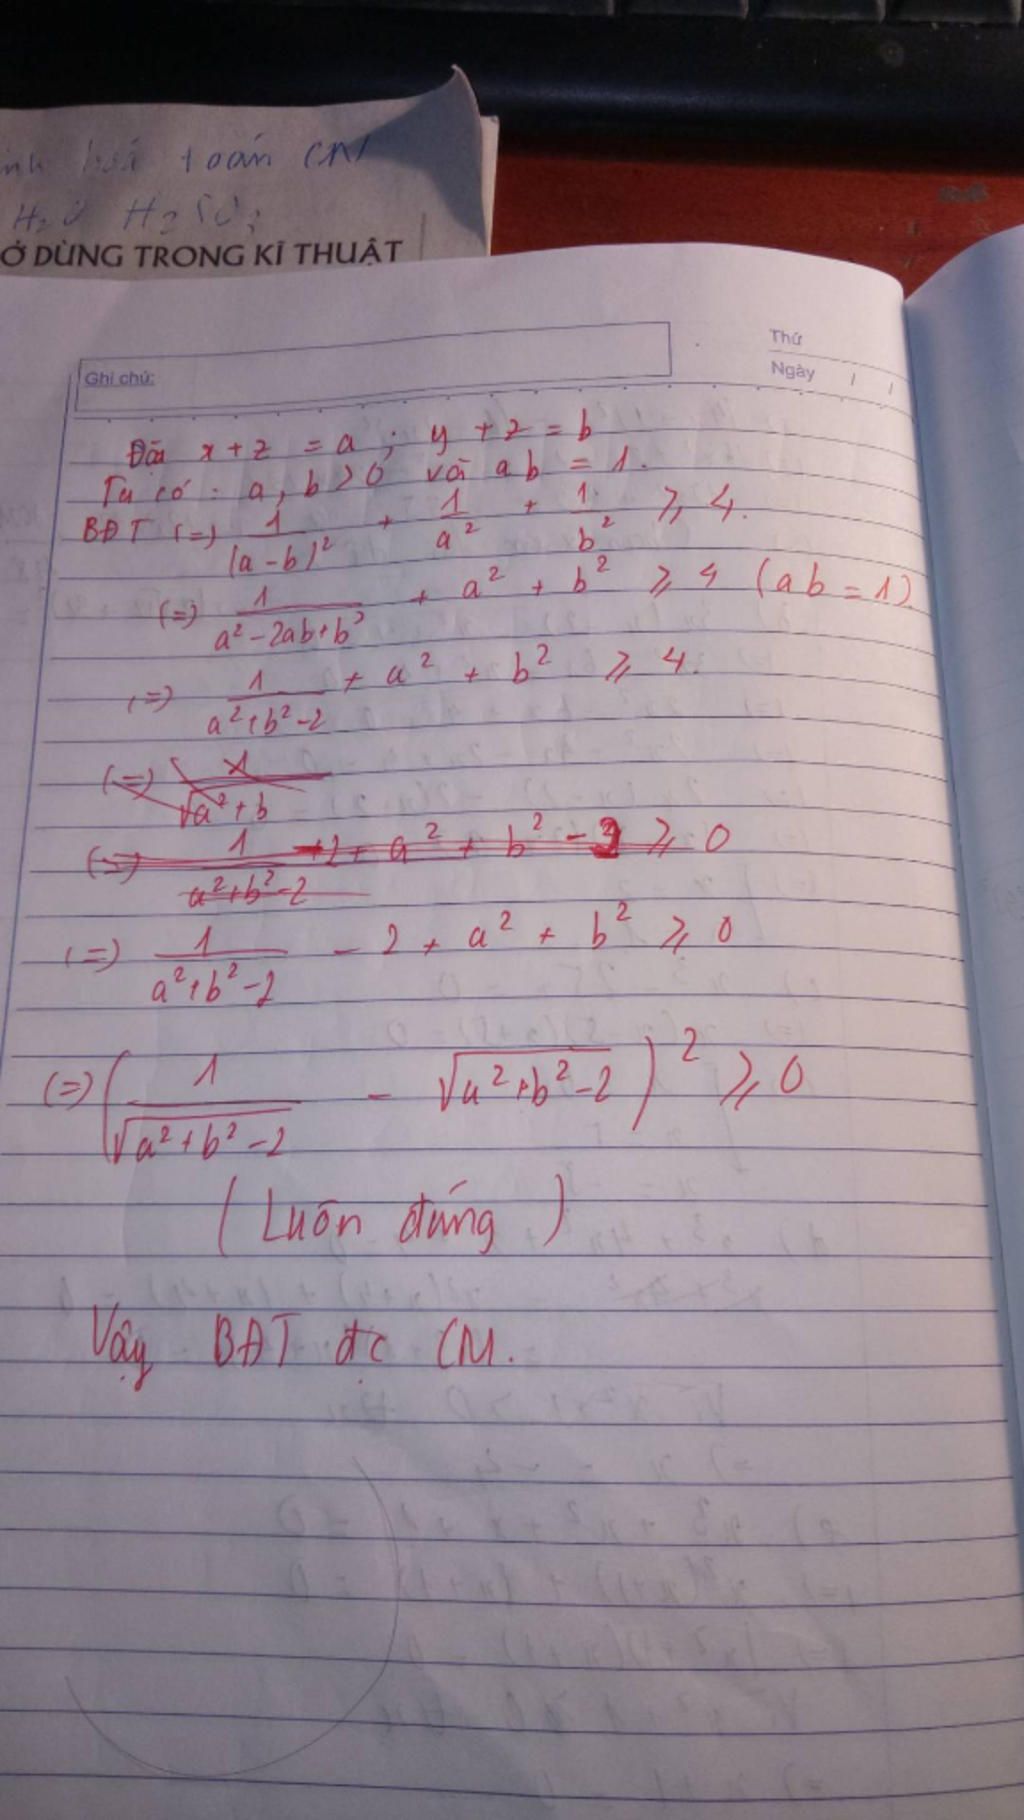 toán CN
H₂O H₂SO₃
Ở DÙNG TRONG KĨ THUẬT
Thứ
Ghi chú:
Ngày / /
Đặt x + z = a ; y + z = b
Ta có : a, b > 0 và ab = 1.
BĐT (=) 1/(a - b)² + 1/a² + 1/b² ≥ 4.
(=) 1/(a² - 2ab + b²) + a² + b² ≥ 4 (ab = 1)
(=) 1/(a² + b² - 2) + a² + b² ≥ 4.
(=) 1/√(a² + b
(=) 1/(a² + b² - 2) + a² + b² ≥ 0
(=) 1/(a² + b² - 2) - 2 + a² + b² ≥ 0
(=) (1/√(a² + b² - 2) - √(a² + b² - 2))² ≥ 0
(Luôn đúng)
Vậy BĐT đc CM.